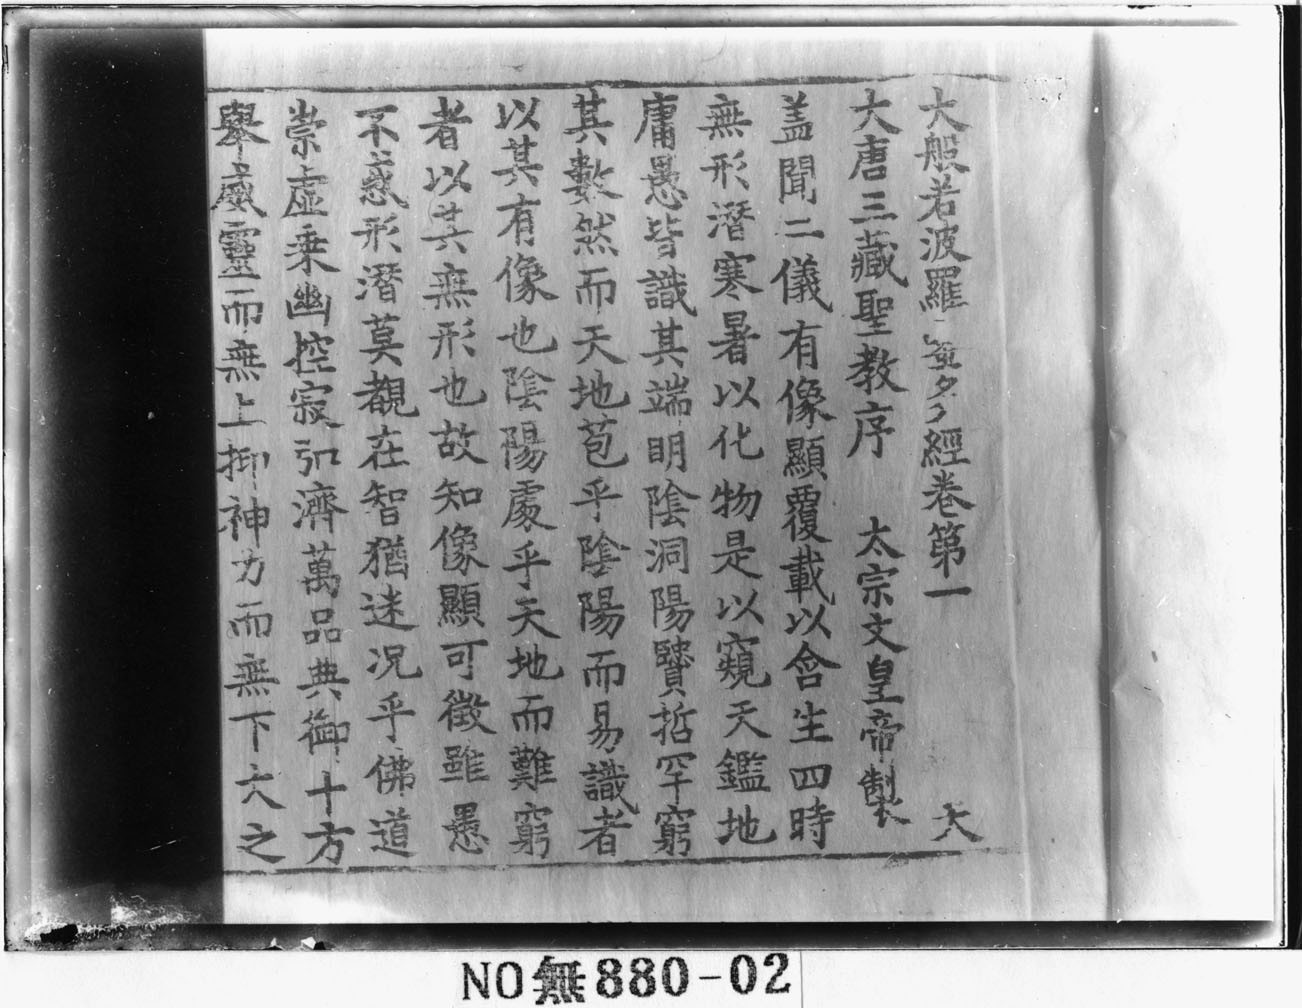 大般若波羅蜜多經卷第一 大
大唐三藏聖教序 太宗文皇帝製
盖聞二儀有像顯覆載以含生四時
無形潛寒暑以化物是以窺天鑑地
庸愚皆識其端明陰洞陽賢哲罕窮
其數然而天地苞乎陰陽而易識者
以其有像也陰陽處乎天地而難窮
者以其無形也故知像顯可徵雖愚
不惑形潛莫覩在智猶迷况乎佛道
崇虛乗幽控寂弘濟萬品典御十方
舉威靈而無上抑神力而無下大之
NO無880-02